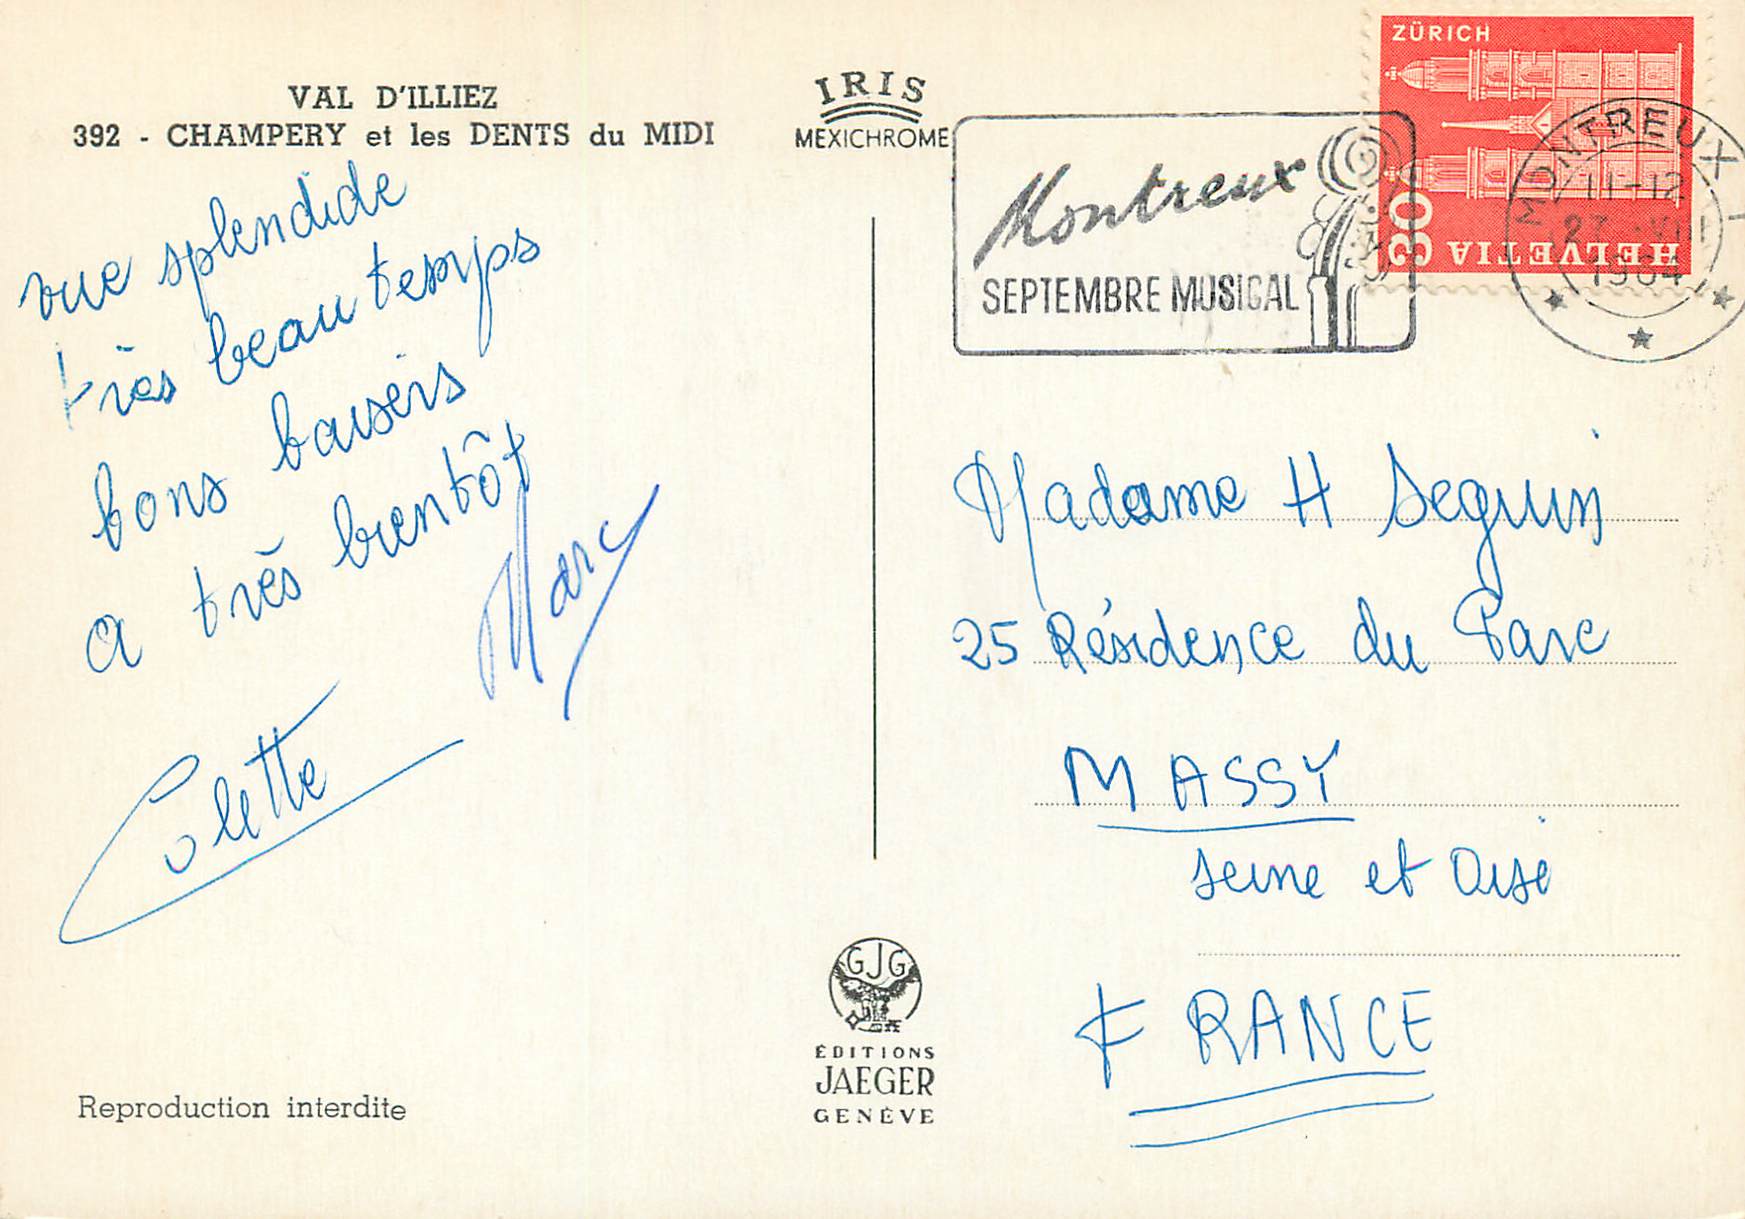 VAL D'ILLIEZ
392 - CHAMPERY et les DENTS du MIDI
IRIS
MEXICHROME
vue splendide
très beau temps
bons baisers
a très bientôt
Marc
Colette
Reproduction interdite
GJG
ÉDITIONS
JAEGER
GENÈVE
Montreux
SEPTEMBRE MUSICAL
ZÜRICH
30
HELVETIA
MONTREUX 1
11-12
1964
Madame H Seguin
25 Résidence du Parc
MASSY
Seine et Oise
FRANCE